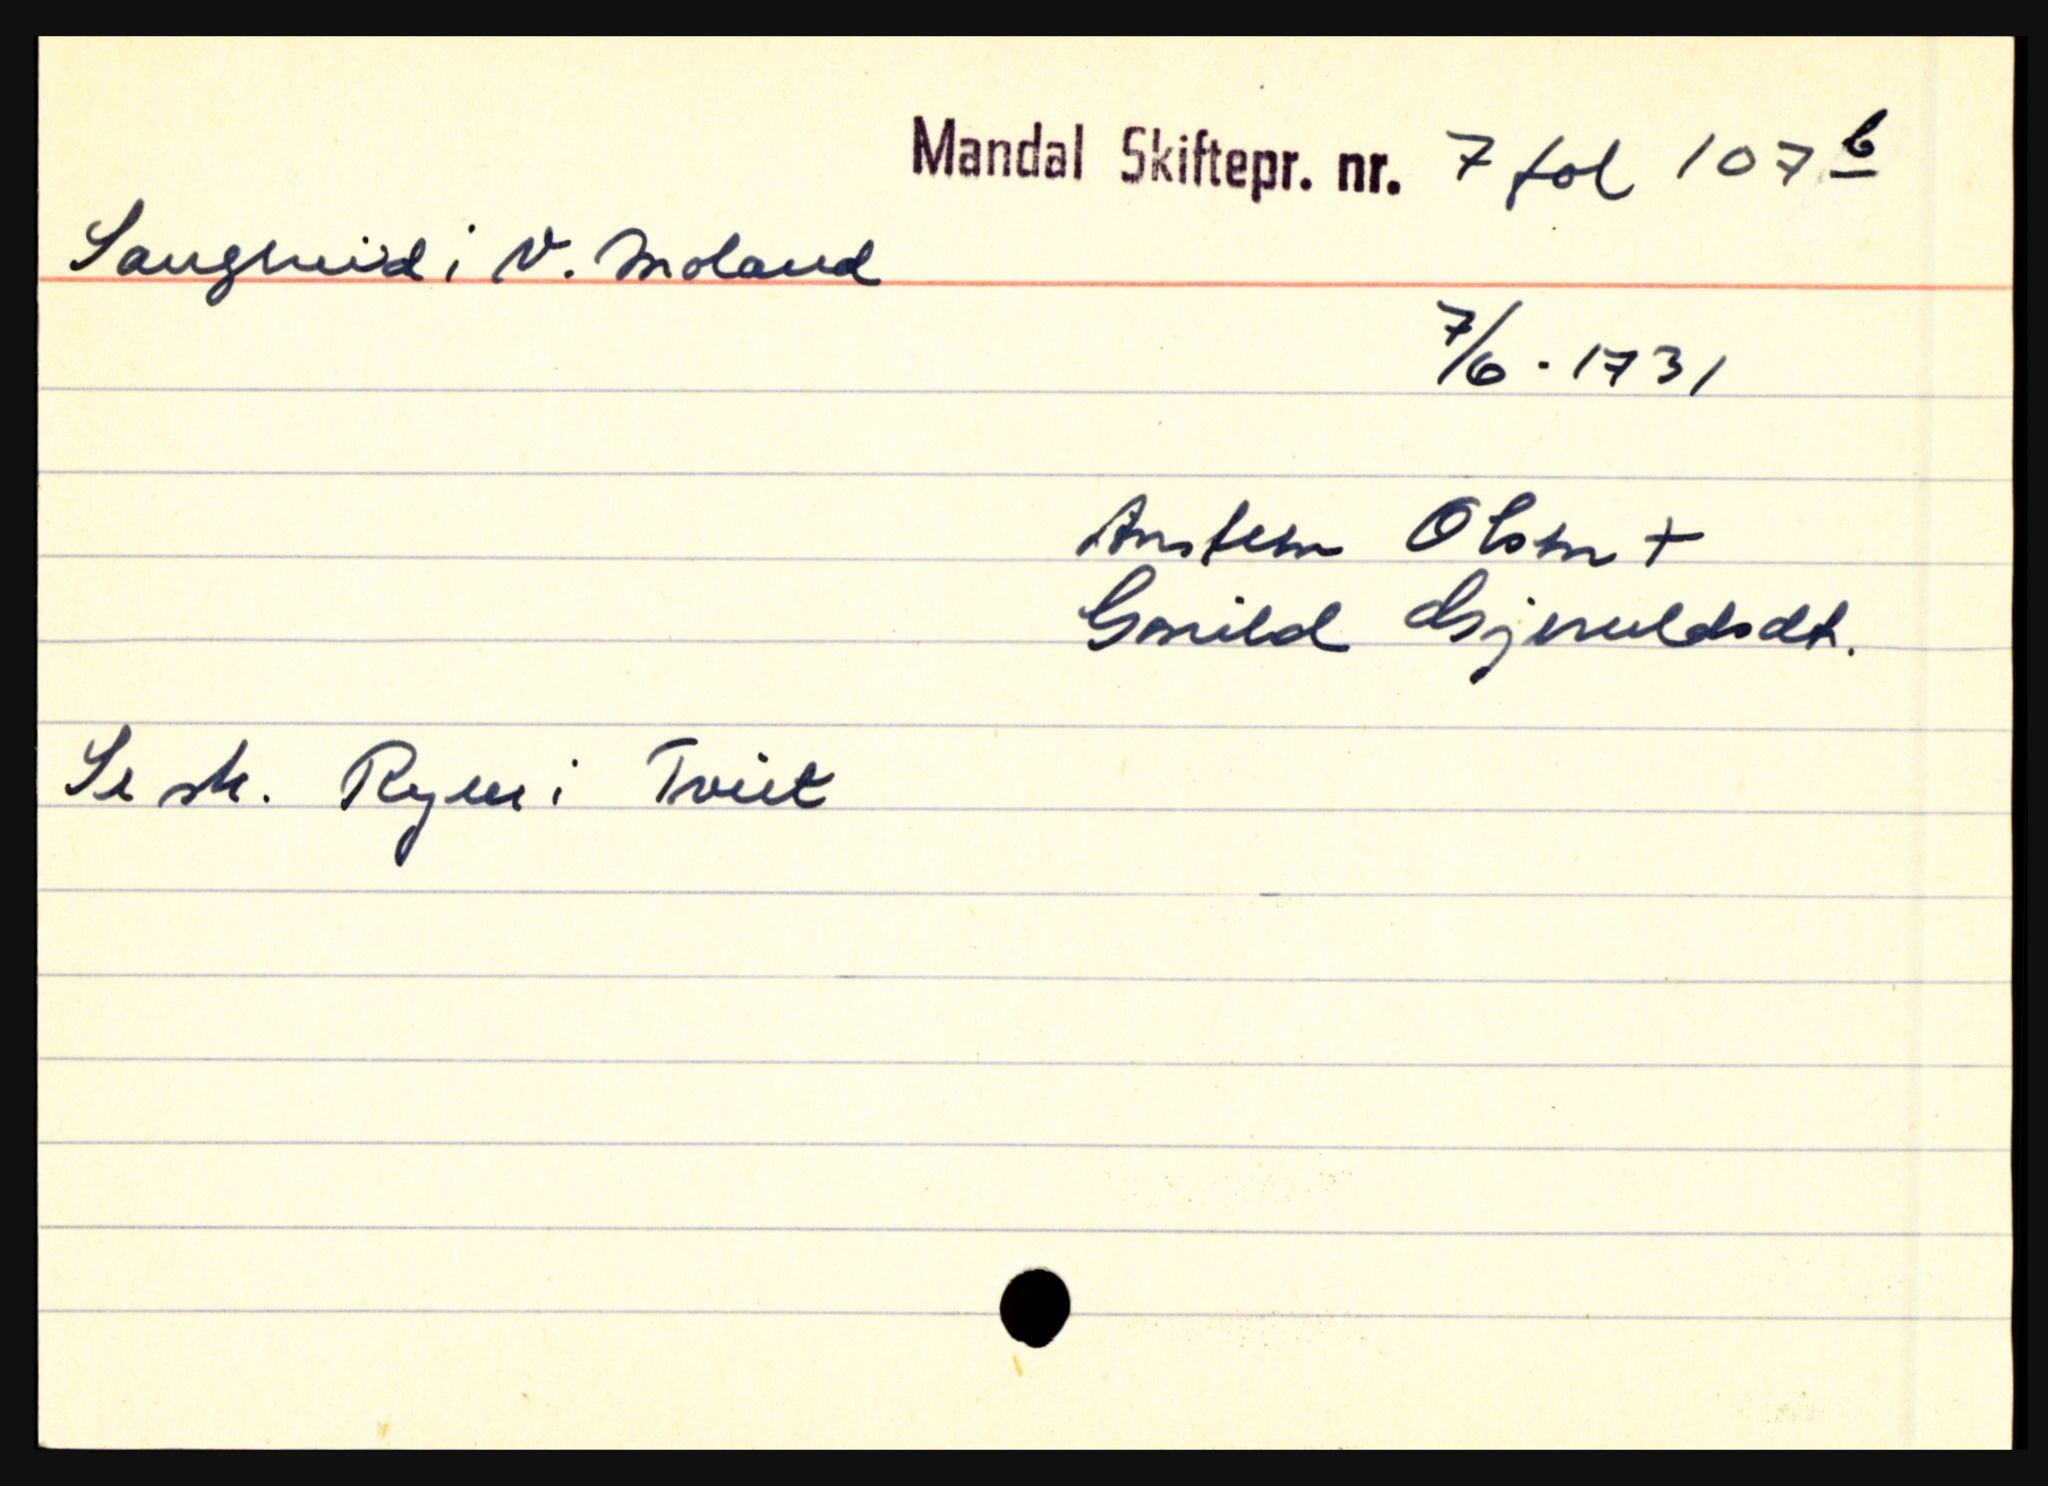 Mandal Skiftepr. nr. 7 fol 107 b
Laugneid i V. Moland
7/6 · 1731
Austen Olsen +
Gunild Gjeruldsdt.
Se sk. Ryen i Tveit